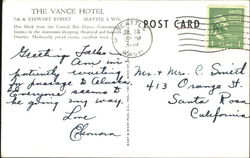 THE VANCE HOTEL
7th & STEWART STREET SEATTLE 1, WN.
One block from the Central Bus Depot. Convenient
location to the downtown shopping, theatrical and
District. Moderately priced rooms, excellent food.
POST CARD
SEATTLE
WASH.
Greetings Folks -
Am im-
patiently waiting
passage to Alaska.
Everyone seems to
be going my way.
Love
Elenora
Mr. & Mrs. C. Smith
413 Orange St.
Santa Rosa
California